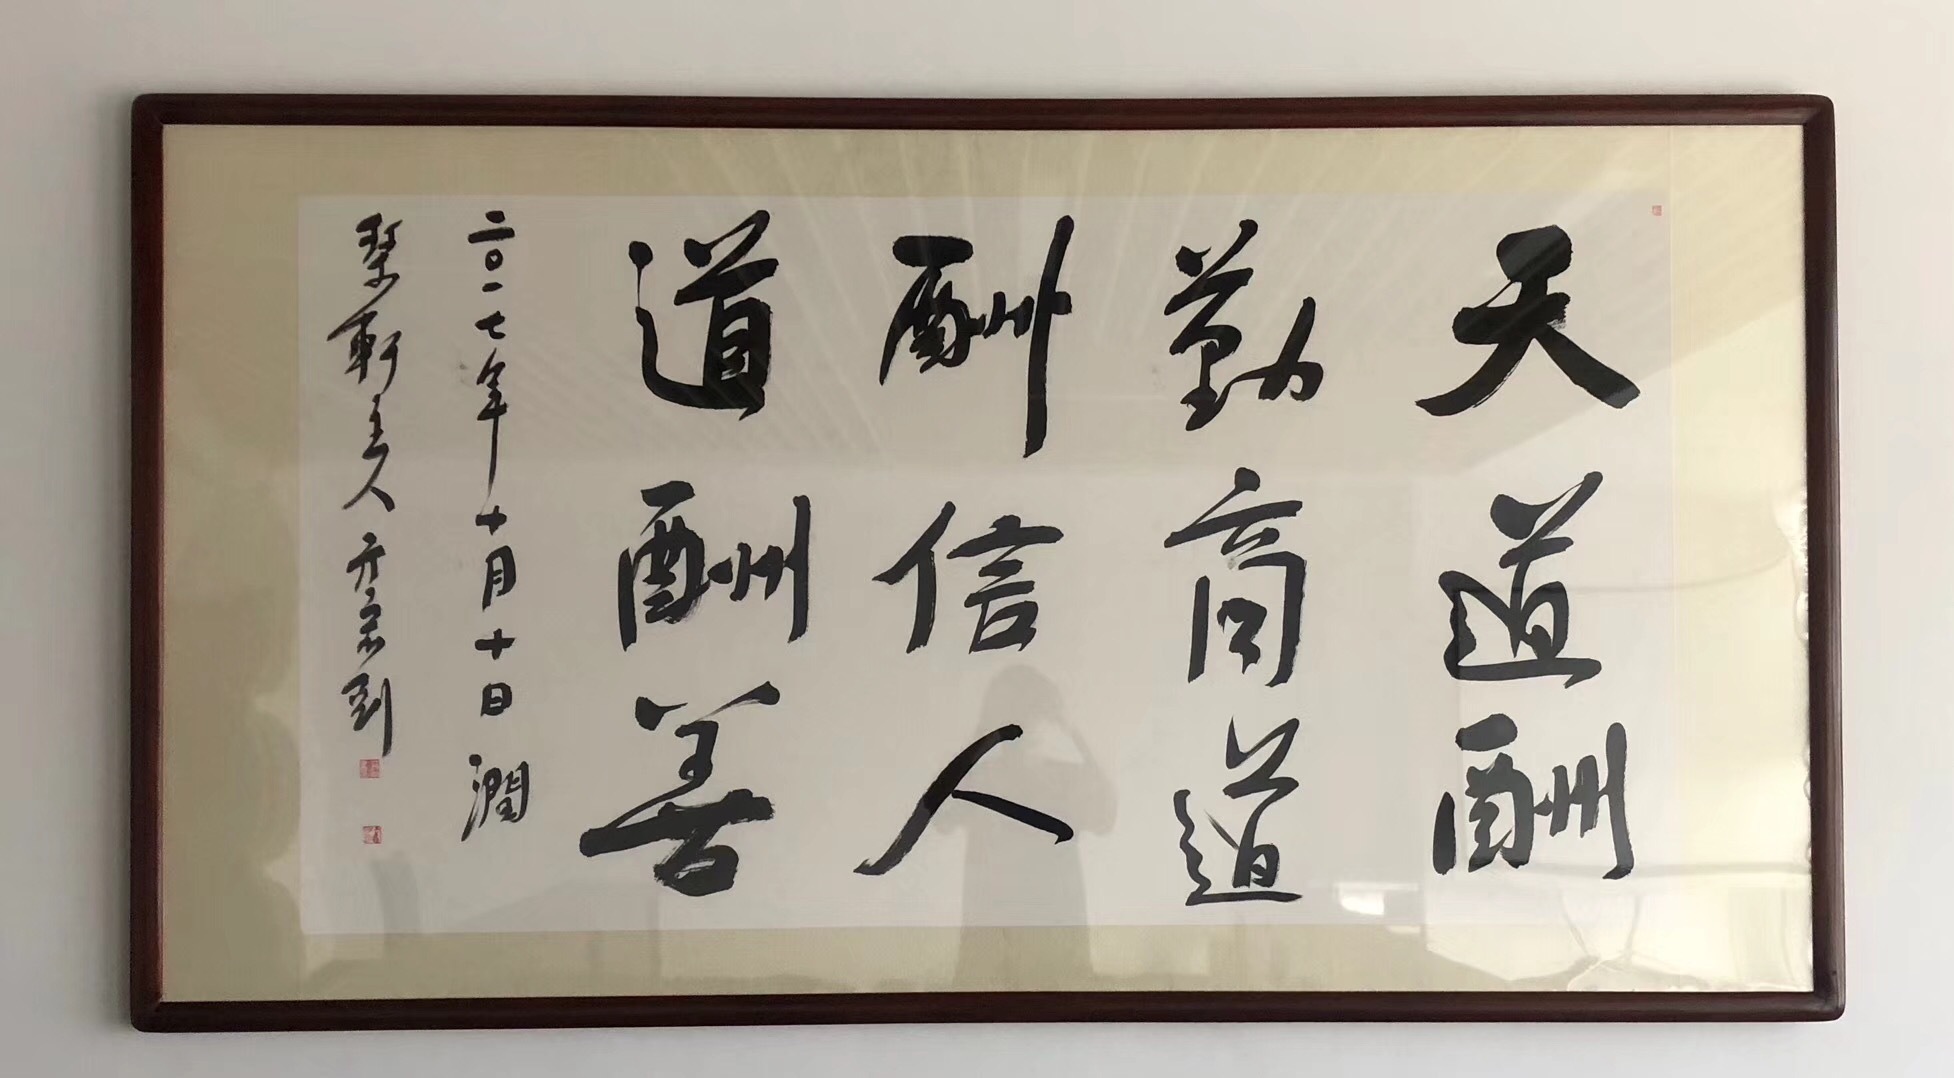 天道酬
勤商道
酬信人
道酬善
二〇一七年十月十日潤
軒主人